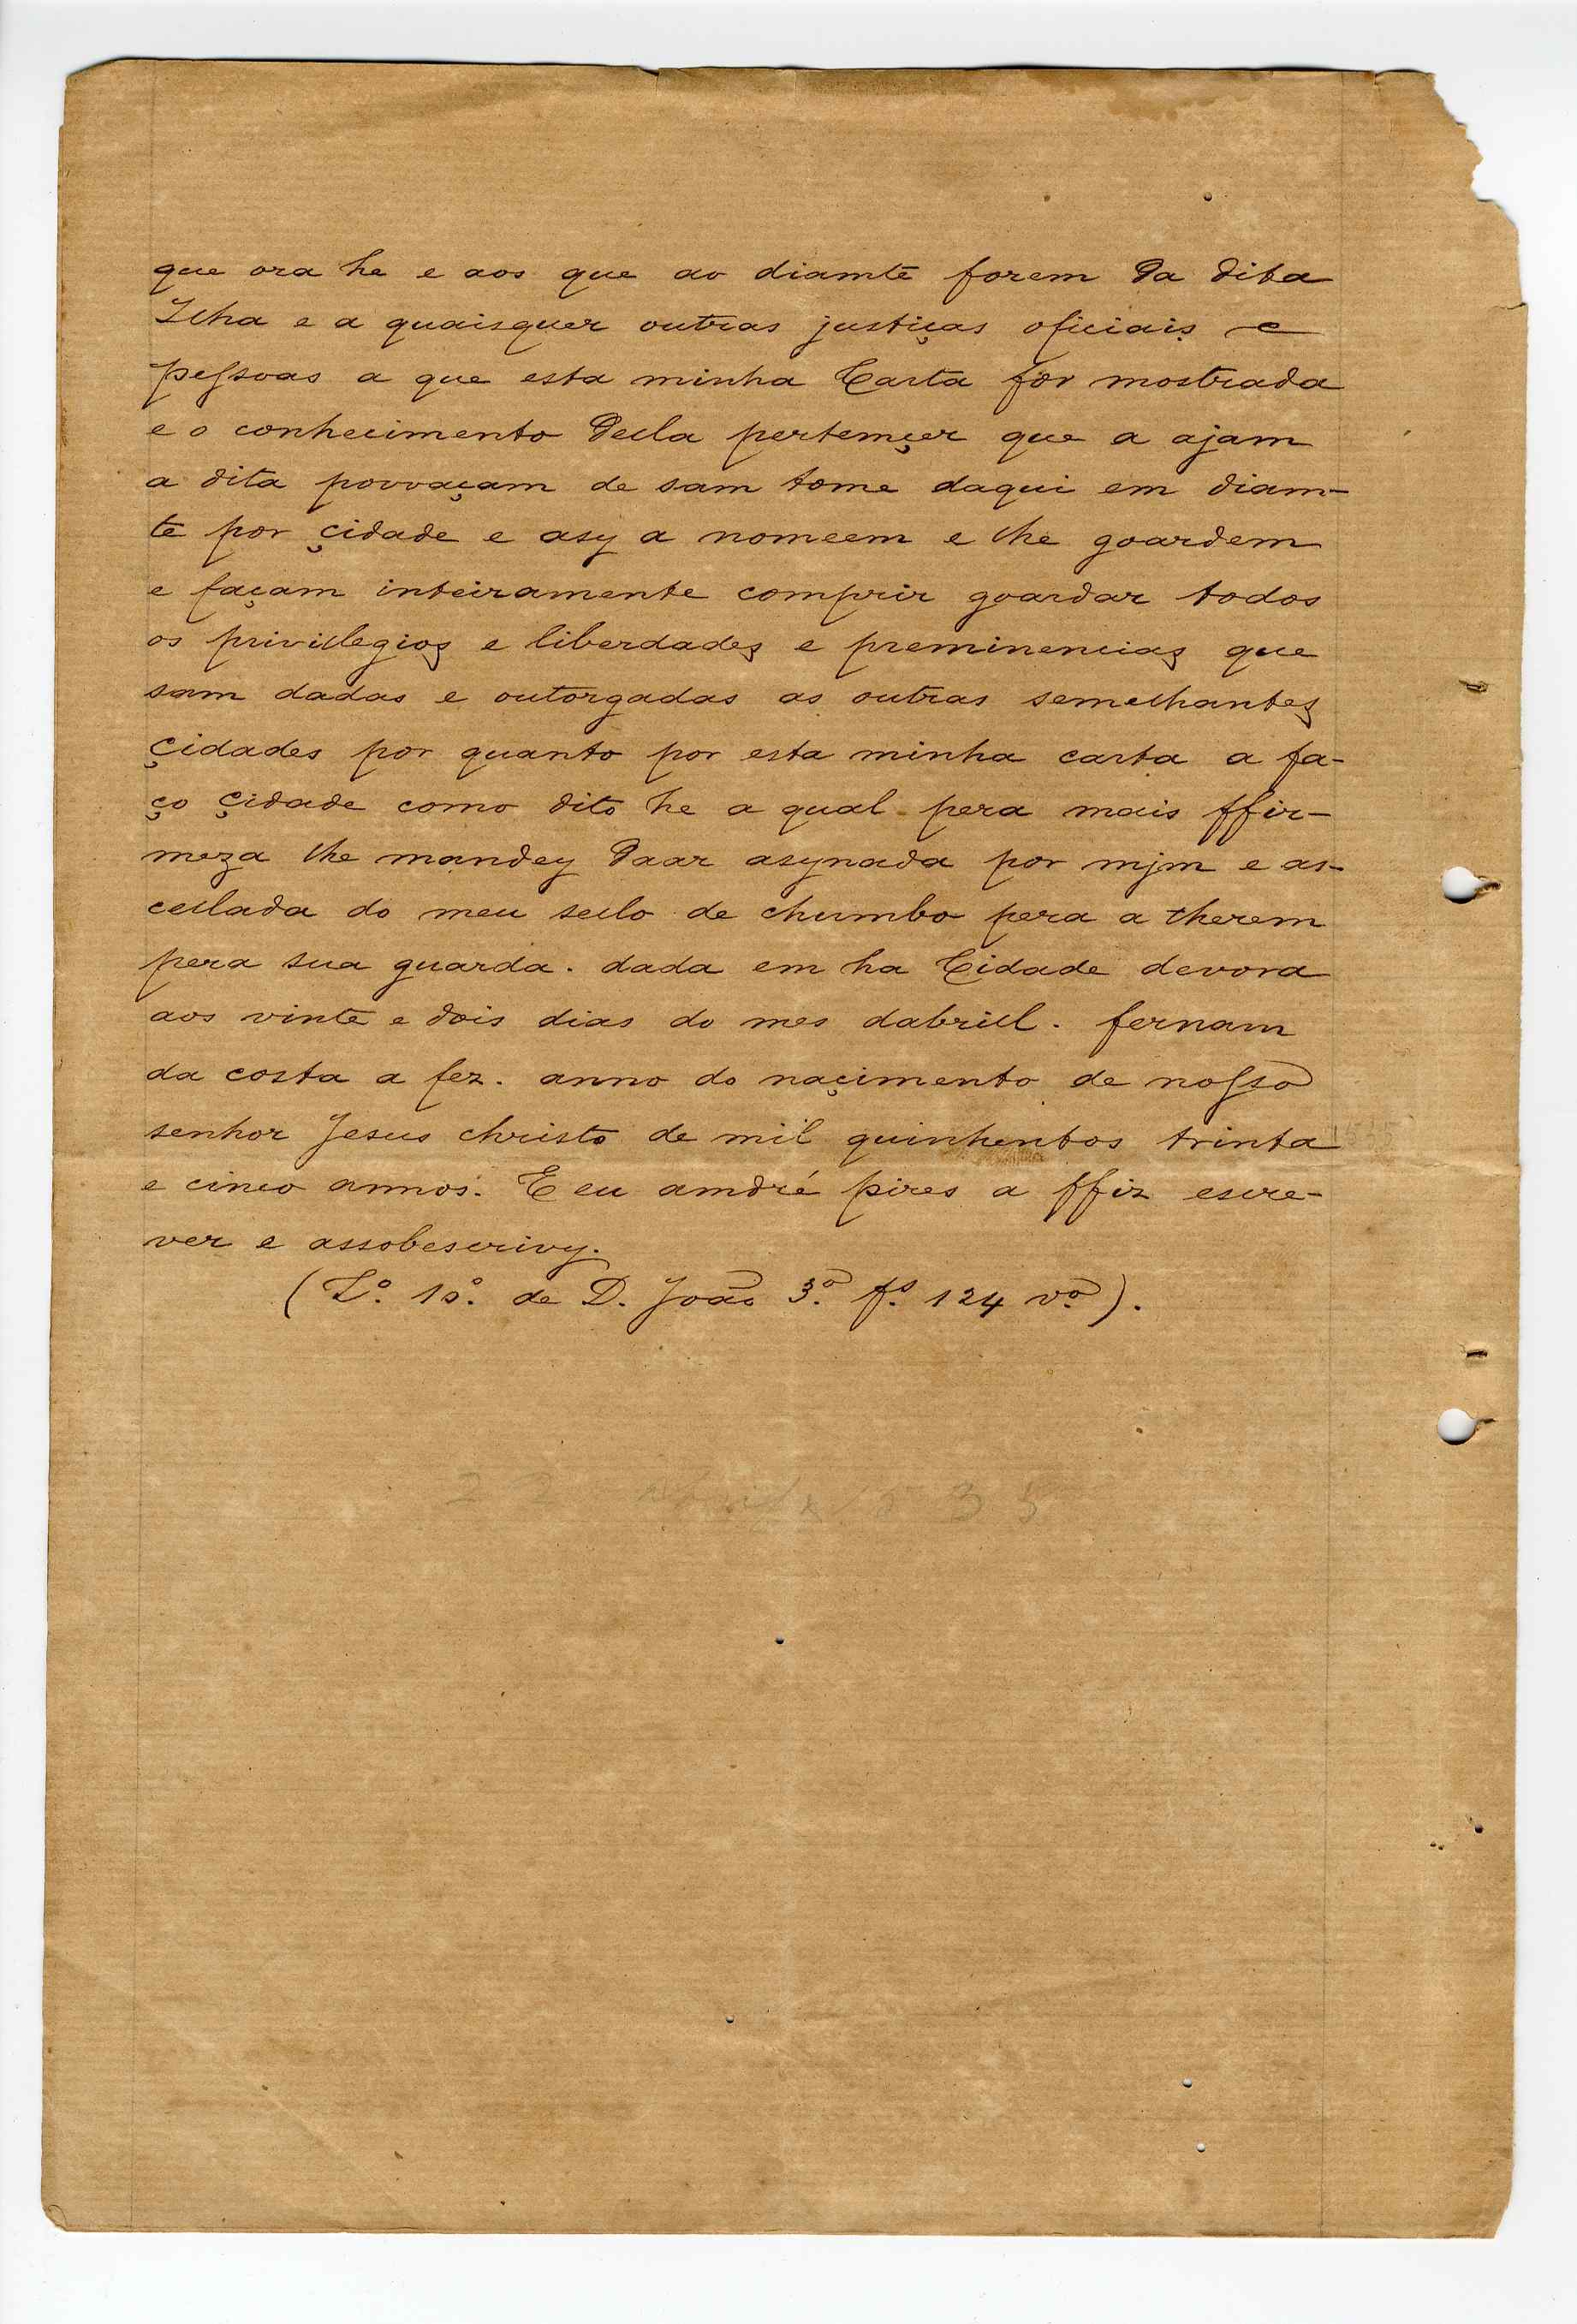 que ora he e aos que ao diamte forem da dita
Ilha e a quaisquer outras justiças oficiais e
pessoas a que esta minha Carta for mostrada
e o conhecimento della pertemçer que a ajam
a dita povvaçam de sam tome daqui em diam-
te por çidade e asy a nomeem e lhe goardem
e façam inteiramente comprir goardar todos
os privillegios e liberdades e preminencias que
sam dadas e outorgadas as outras semelhantes
çidades por quanto por esta minha carta a fa-
ço çidade como dito he a qual pera mais ffir-
meza lhe mandey daar asynada por mjm e as-
cellada do meu sello de chumbo pera a therem
pera sua guarda. dada em ha Cidade devora
aos vinte e dois dias do mes dabrill. fernam
da costa a fez. anno do naçimento de nosso
senhor Jesus christo de mil quinhentos trinta
e cinco annos. E eu amdré pires a ffiz escre-
ver e assobescrivy.
(L.º 10.º de D. João 3.º fs. 124 vº).
22 Abril 1535